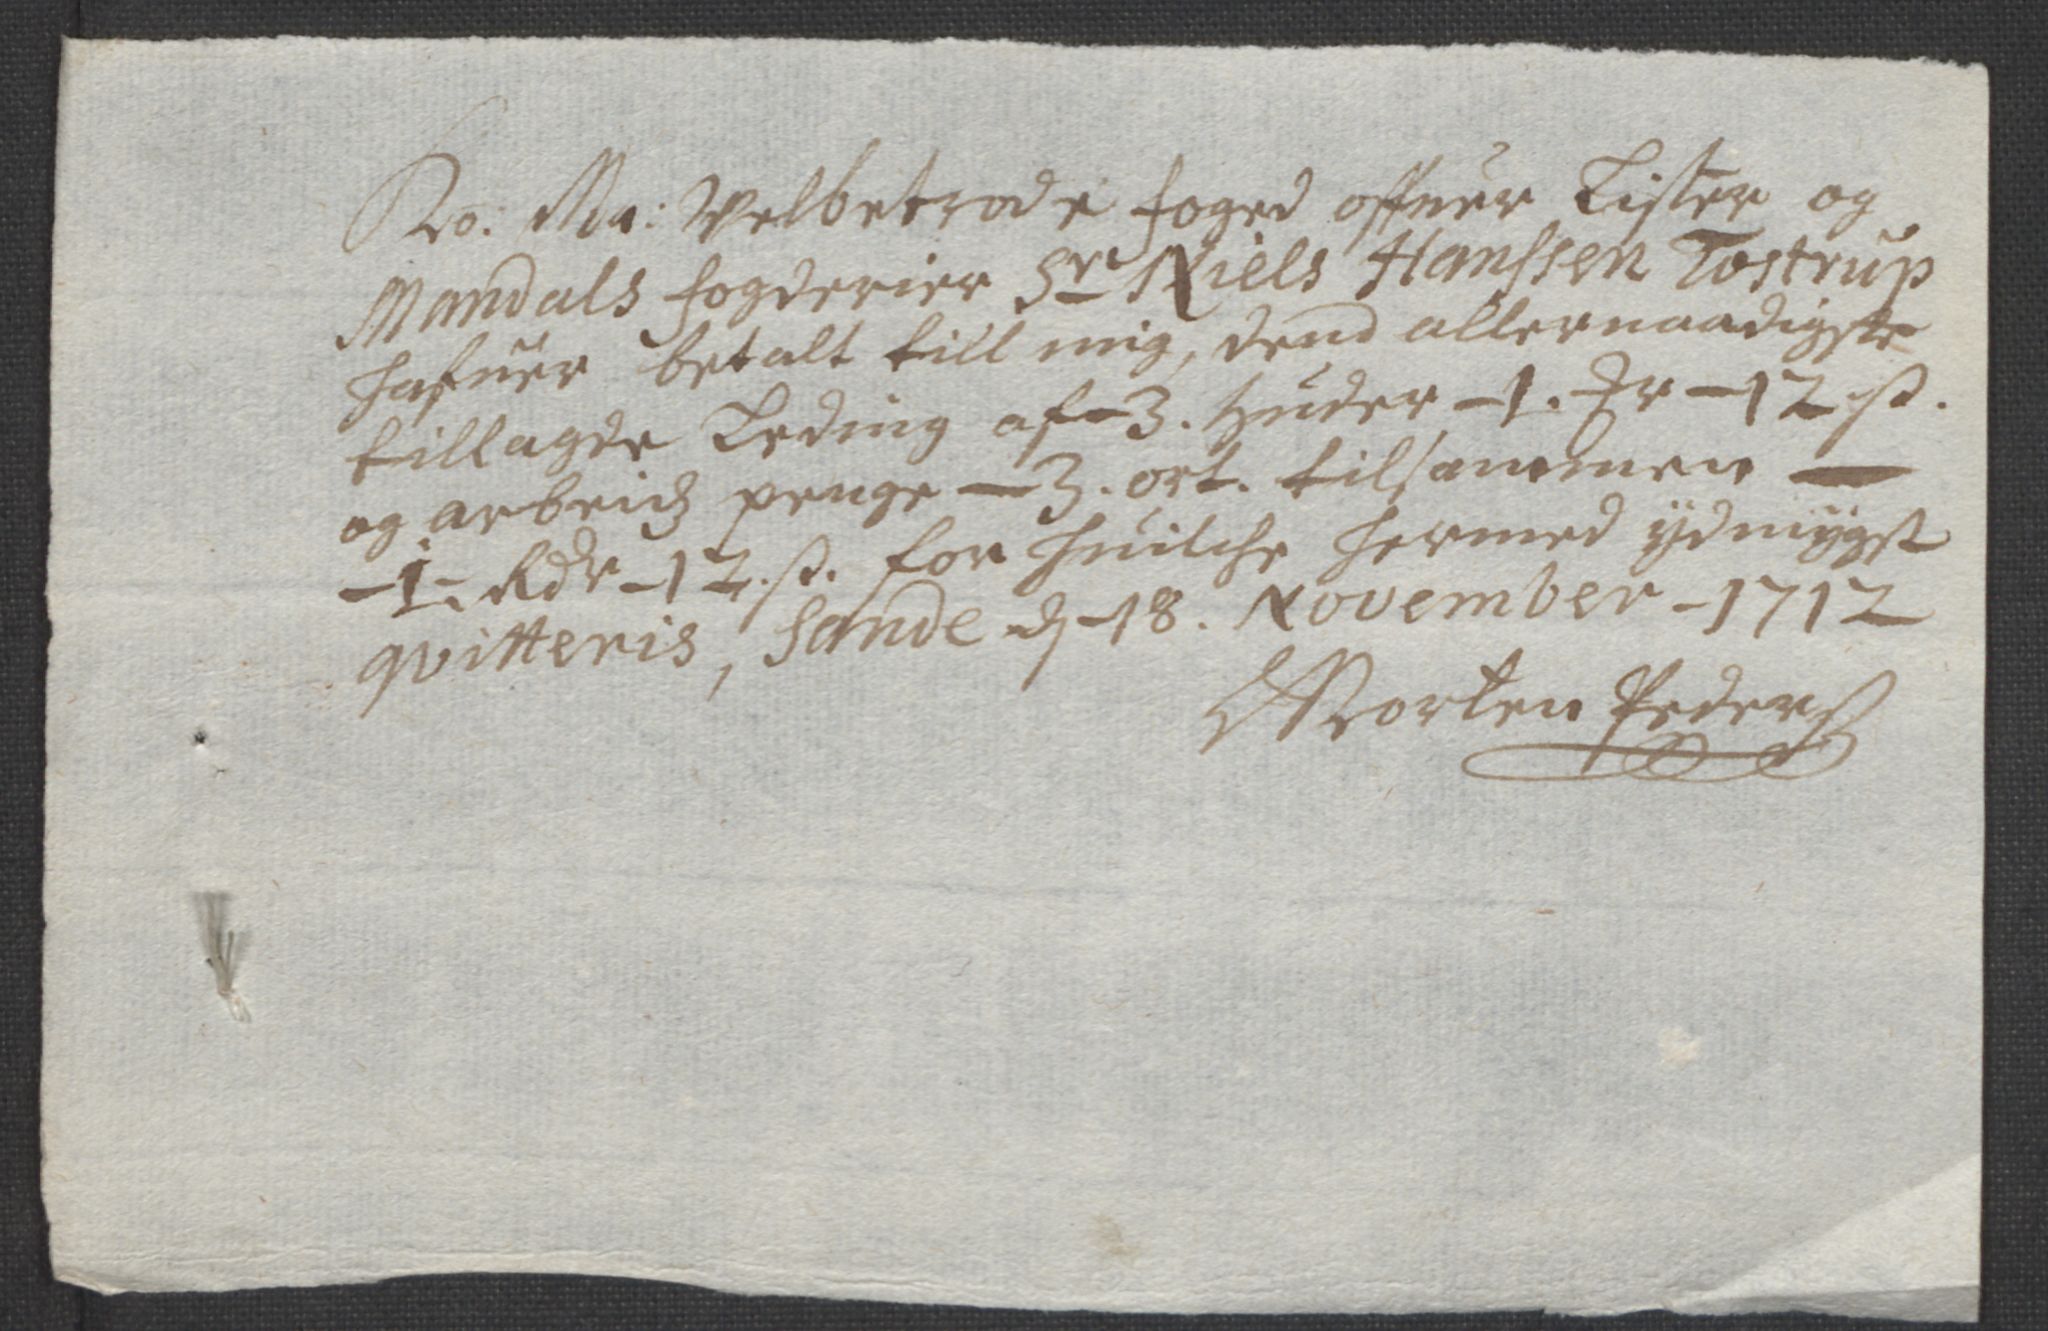 Ko: Ma: Velbetrode foged offuer Lister og
Mandals fogderier Sr. Niels Hanssen Tostrup
hafuer betalt till mig, dend allernaadigste
tillagde Leding af - 3. huder - 1. - 12 ß.
og arbeidz penge - 3. ort. tilsammen —
- 1 - Rdr - 12. ß. for huilche hermed ydmygst
qvitteris, Sande d - 18. November - 1712
Morten Peders